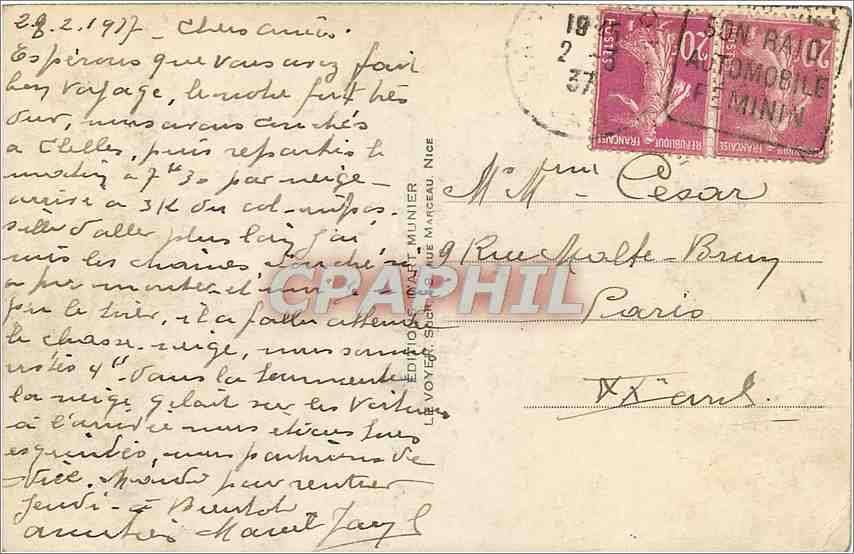 28.2.1937 - Chers amis.
Espérons que vous avez fait
bon voyage, le notre fut très
dur, nous avons couchés
a Clelles, puis repartis le
matin a 7h30 par neige -
arrivé a 3K du col - impos-
sible d'aller plus loin j'ai
mis les chaines
a pu monter et
pu le tirer, il a fallu attendre
le chasse-neige, nous sommes
restés 4h - dans la tourmente
la neige gelait sur les voitures
à l'arrivée nous étions tous
esquintés, nous partirons de
Nice Mardi pour rentrer
Jeudi - à Bientot
amitiés Marcel
EDITIONS D'ART MUNIER
LE VOYER, Sucr, 8, RUE MARCEAU, NICE
1935
2 - 3
37
SON RAID
AUTOMOBILE
FEMININ
20c
POSTES
REPUBLIQUE FRANÇAISE
20c
Mr Mme Cesar
9 Rue Malte-Brun
Paris
XXe arrt.
CPAPHIL